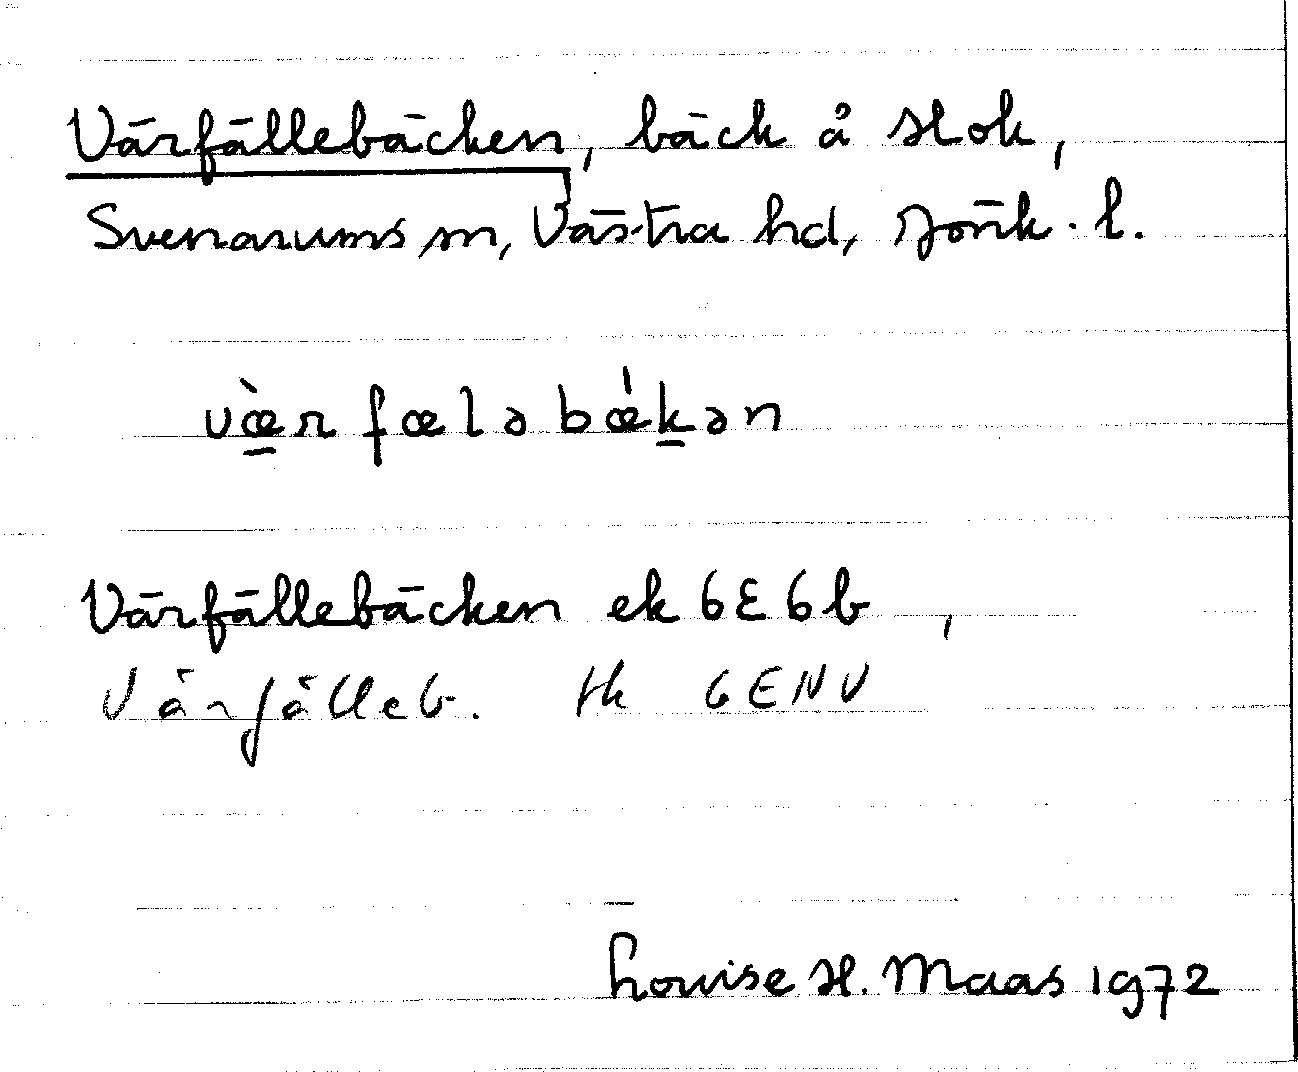 Värfällebäcken, bäck å Hok,
Svenarums sn, Västra hd, Jönk. l.
vœ̀r fœlə bœ́kən
Värfällebäcken ek 6E6b,
Värfälleb. tk 6ENV
Louise H. Maas 1972